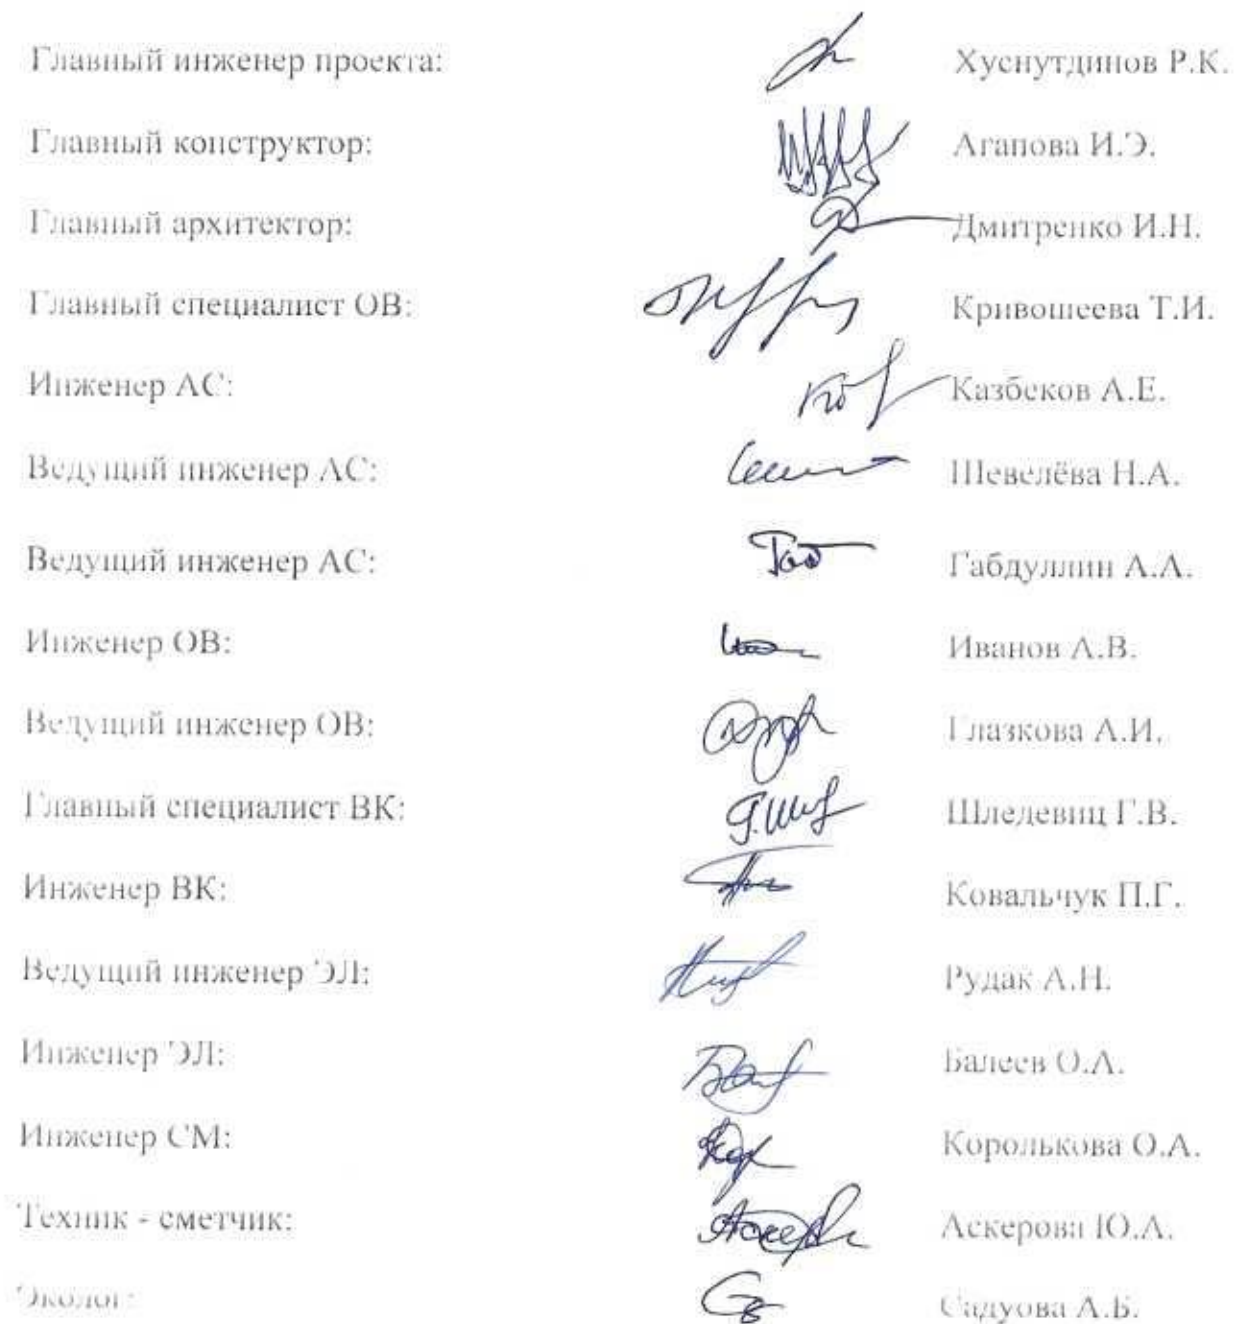 Главный инженер проекта: Хуснутдинов Р.К.
Главный конструктор: Агапова И.Э.
Главный архитектор: Дмитренко И.Н.
Главный специалист ОВ: Кривошеева Т.И.
Инженер АС: Казбеков А.Е.
Ведущий инженер АС: Шевелёва Н.А.
Ведущий инженер АС: Габдуллин А.А.
Инженер ОВ: Иванов А.В.
Ведущий инженер ОВ: Глазкова А.И.
Главный специалист ВК: Шледевиц Г.В.
Инженер ВК: Ковальчук П.Г.
Ведущий инженер ЭЛ: Рудак А.Н.
Инженер ЭЛ: Балеев О.А.
Инженер СМ: Королькова О.А.
Техник - сметчик: Аскерова Ю.А.
Эколог: Садуова А.Б.